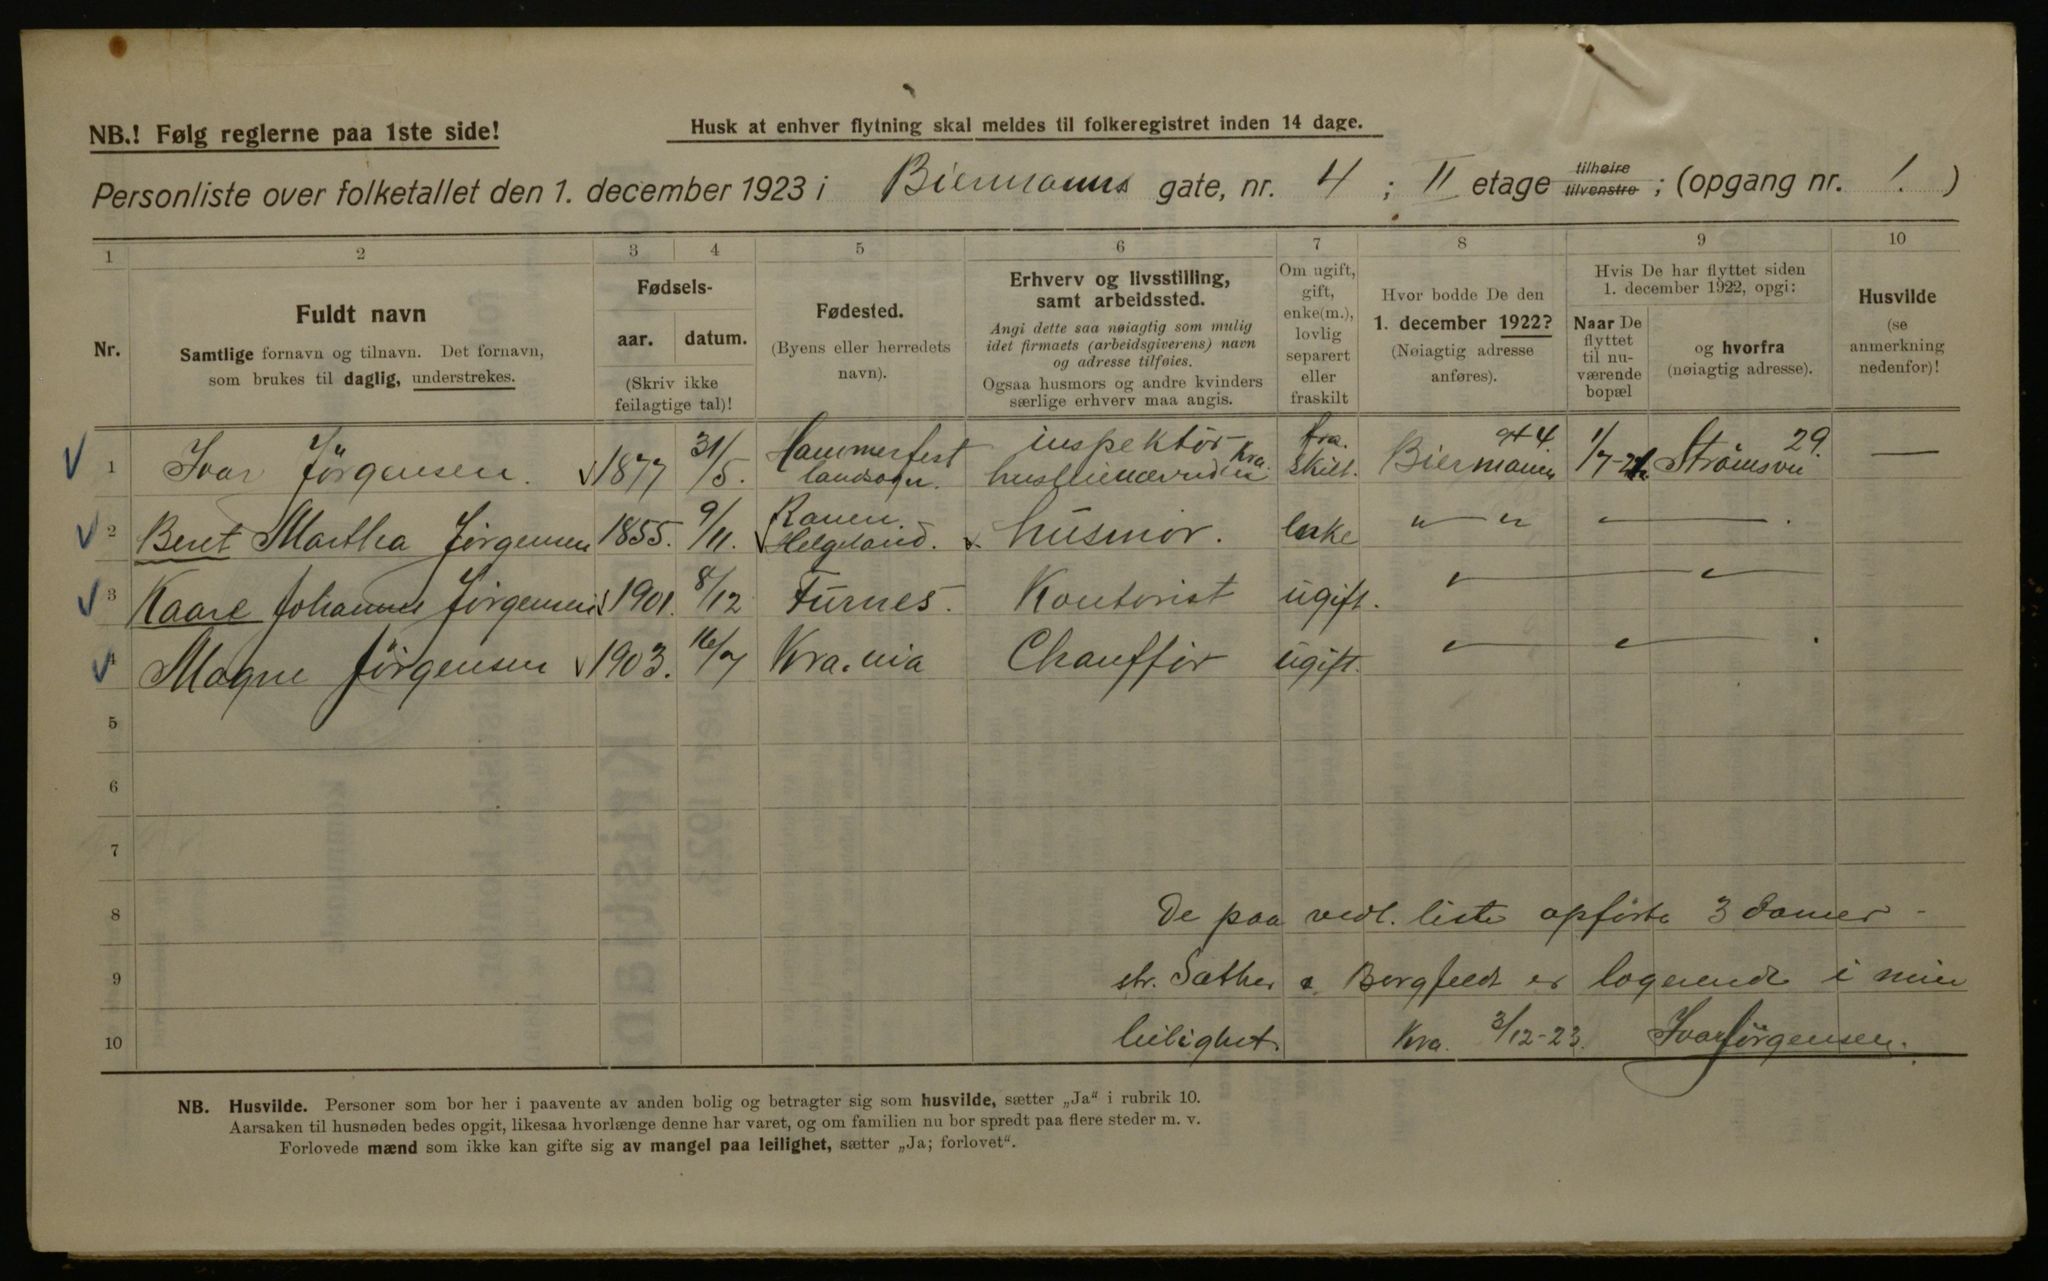 NB.! Følg reglerne paa 1ste side!
Husk at enhver flytning skal meldes til folkeregistret inden 14 dage.
Personliste over folketallet den 1. december 1923 i Biermanns gate, nr. 4 ; II etage tilhøire tilvenstre ; (opgang nr. 1. )
1 2 3 4 5 6 7 8 9 10
Nr.
Fuldt navn
Samtlige fornavn og tilnavn. Det fornavn,
som brukes til daglig, understrekes.
Fødsels-
aar. datum.
(Skriv ikke
feilagtige tal)!
Fødested.
(Byens eller herredets
navn).
Erhverv og livsstilling,
samt arbeidssted.
Angi dette saa nøiagtig som mulig
idet firmaets (arbeidsgiverens) navn
og adresse tilføies.
Ogsaa husmors og andre kvinders
særlige erhverv maa angis.
Om ugift,
gift,
enke(m.),
lovlig
separert
eller
fraskilt
Hvor bodde De den
1. december 1922?
(Nøiagtig adresse
anføres).
Hvis De har flyttet siden
1. december 1922, opgi:
Naar De
flyttet
til nu-
værende
bopæl
og hvorfra
(nøiagtig adresse).
Husvilde
(se
anmerkning
nedenfor)!
1 Ivar Jörgensen. 1877 31/5. Hammerfest landsogn. inspektör Kra. fra. skilt. Biermanns gt 4 1/7- Strömsvn 29. —
2 Beret Martha Jörgensen 1855. 9/11. Ranen. Helgeland. husmor. enke " — "
3 Kaare Johannes Jörgensen 1901. 8/12 Furnes. Kontorist ugift. " "
4 Magne Jörgensen 1903. 16/7 Kra.nia Chaufför ugift. " "
5
6
7
8 De paa vedl. liste opförte 3 damer -
9 str. Sæther & Borgfeldt er logerende i min
10 leilighet. Kra. 3/12-23. Ivar Jörgensen.
NB. Husvilde. Personer som bor her i paavente av anden bolig og betragter sig som husvilde, sætter „Ja“ i rubrik 10.
Aarsaken til husnøden bedes opgit, likesaa hvorlænge denne har varet, og om familien nu bor spredt paa flere steder m. v.
Forlovede mænd som ikke kan gifte sig av mangel paa leilighet, sætter „Ja; forlovet“.